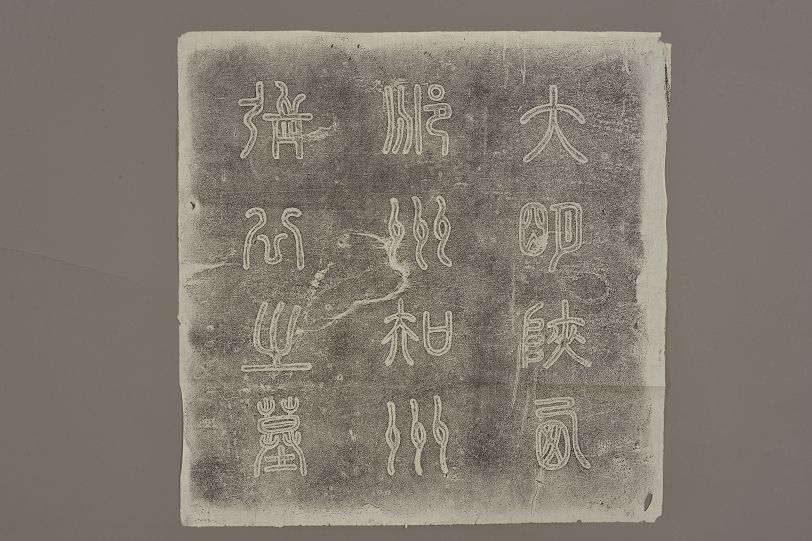 大明陝西
州知州
公之墓